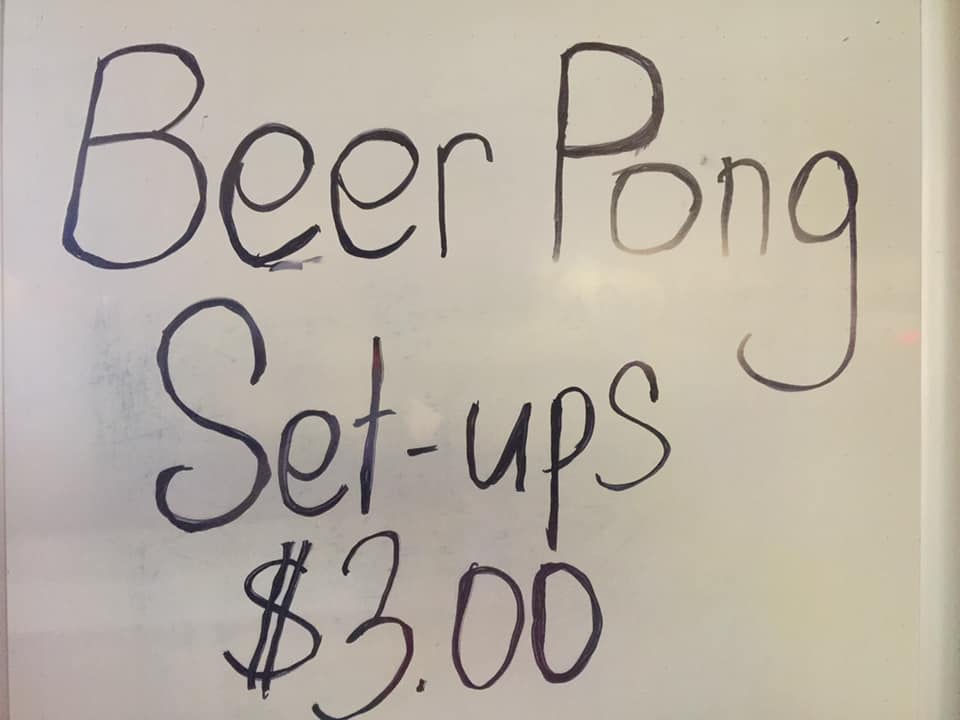 Beer Pong
Set-ups
$3.00